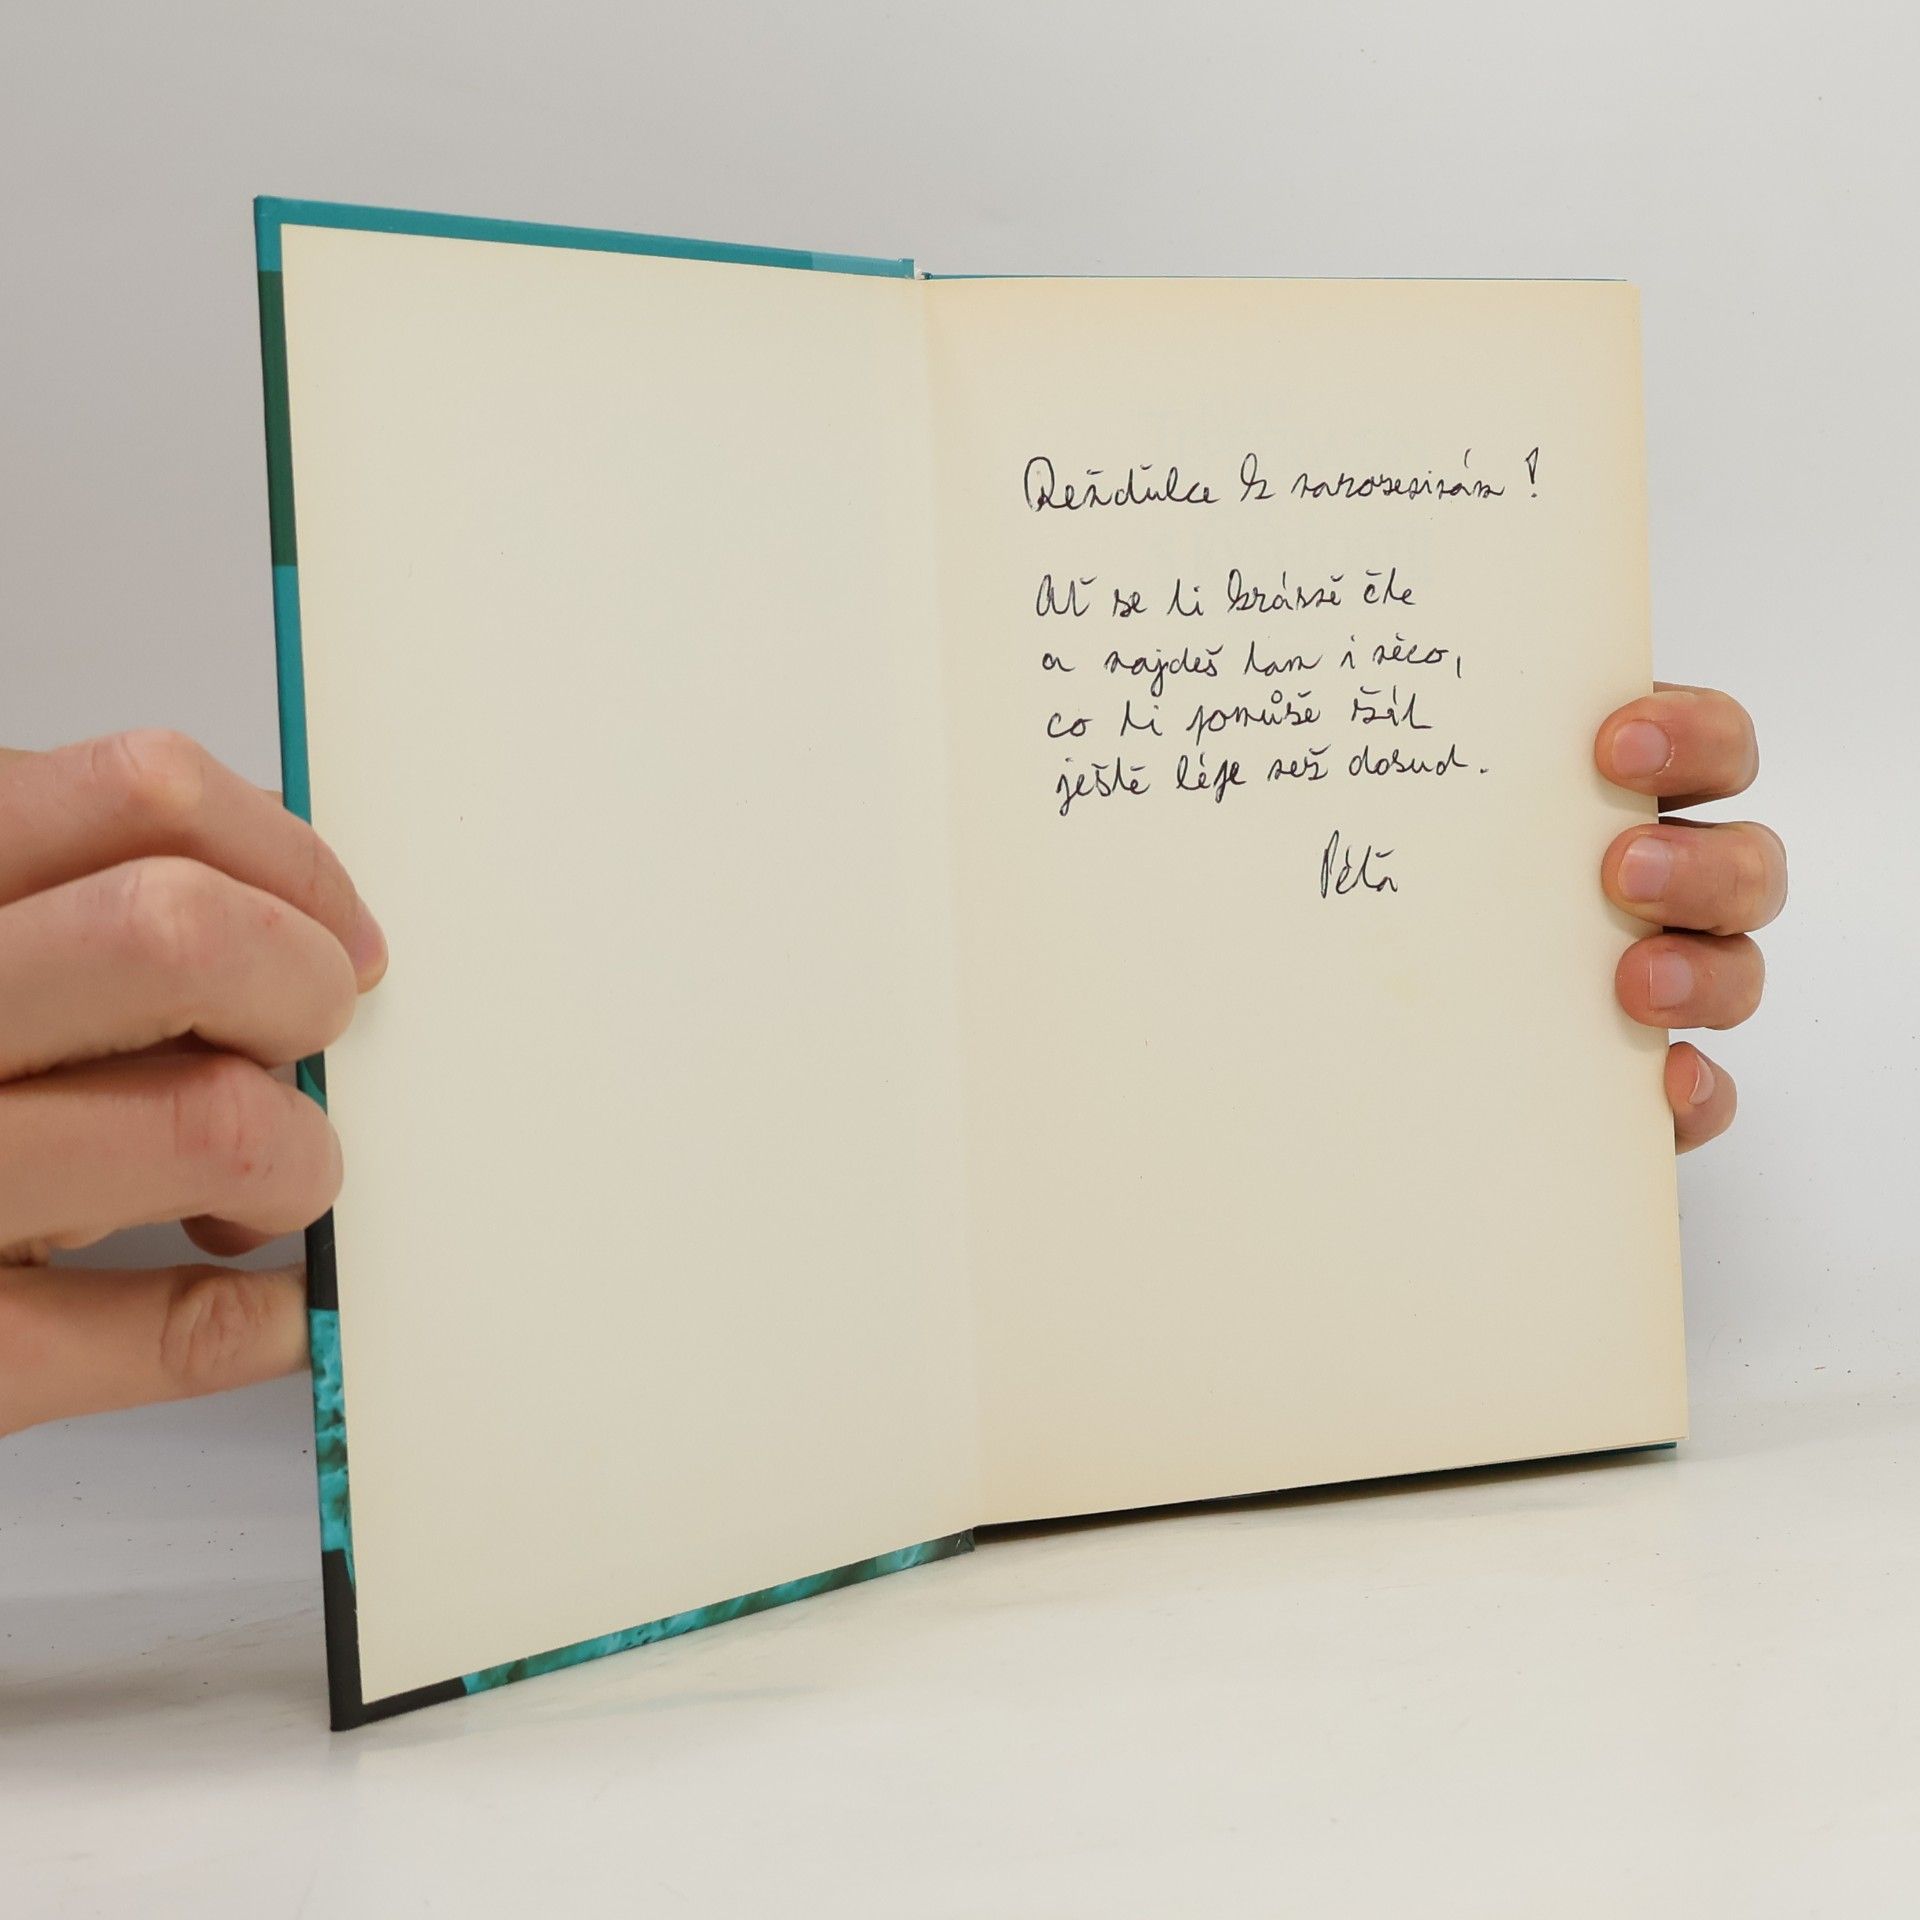 Režďulce k narozeninám!
Ať se ti krásně čte
a najdeš tam i něco,
co ti pomůže žít
ještě lépe než dosud.
Péťa